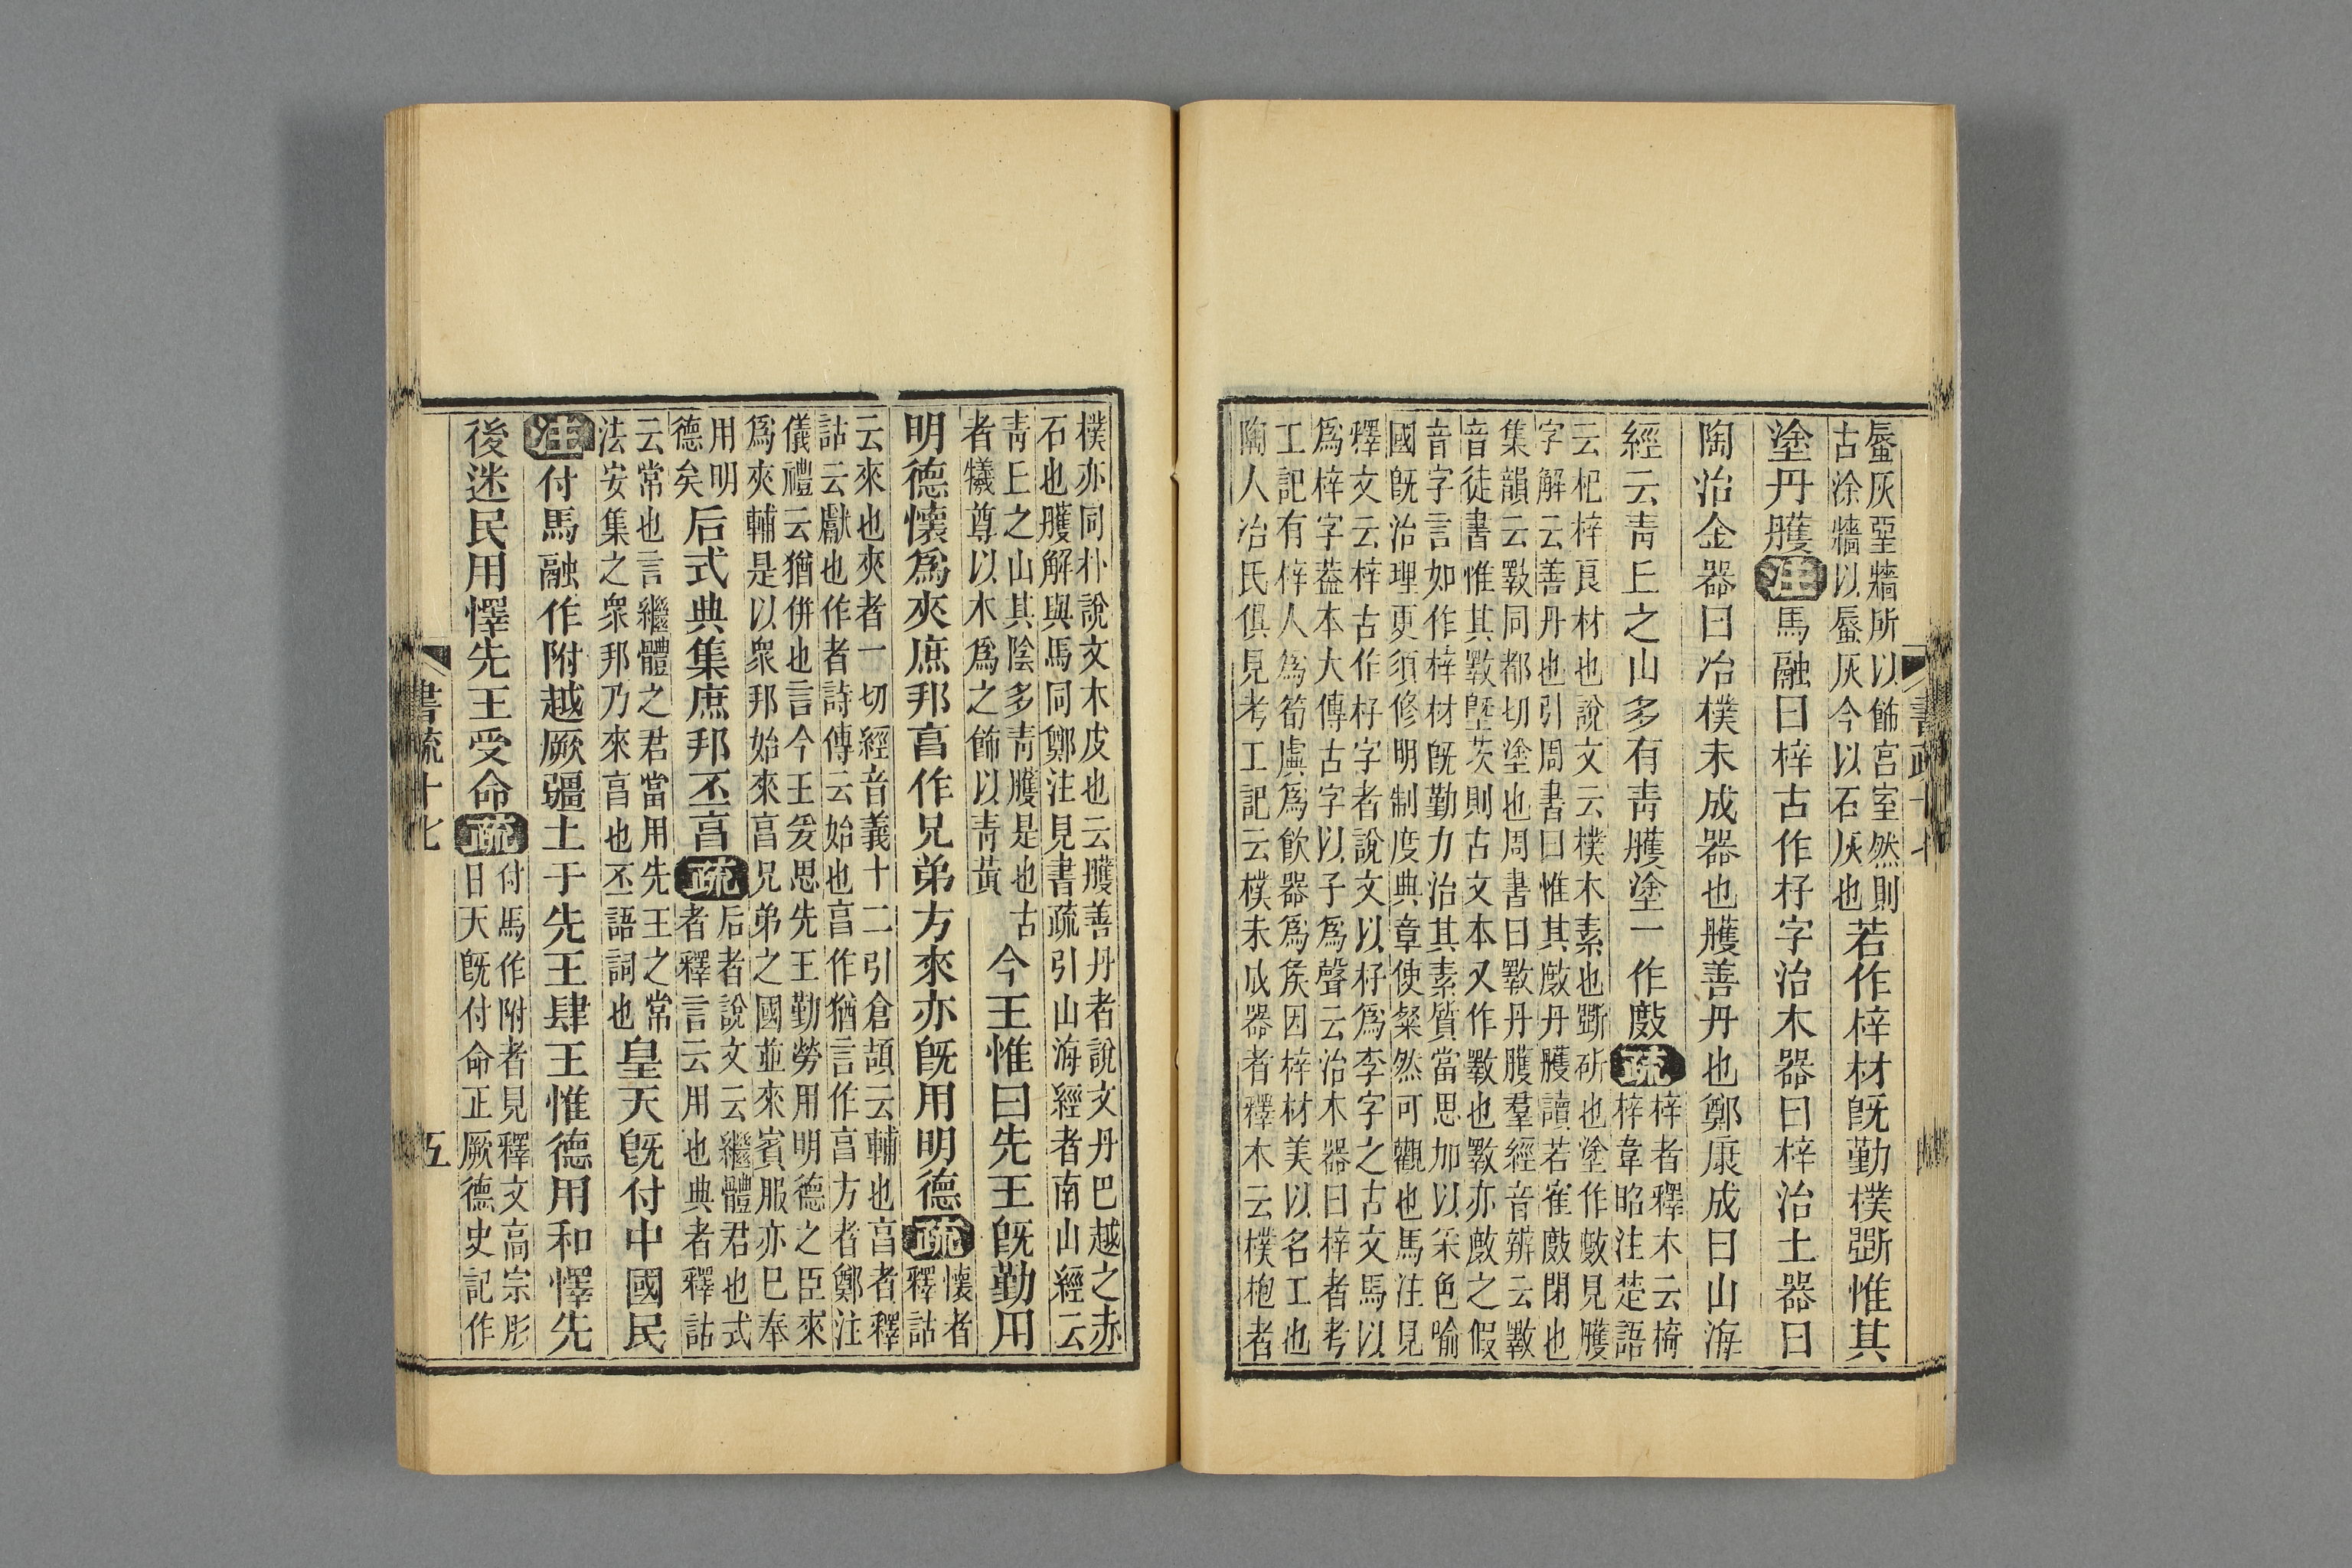 蜃灰堊牆所以飾宮室然則
古涂牆以蜃灰今以石灰也
若作梓材旣勤樸斲惟其
塗丹雘注馬融曰梓古作杍字治木器曰梓治土器曰
陶治金器曰冶樸未成器也雘善丹也鄭康成曰山海
經云靑丘之山多有靑雘塗一作㪟疏
梓者釋木云椅
梓韋昭注楚語
云杞梓良材也說文云樸木素也斲斫也塗作㪟見雘
字解云善丹也引周書曰惟其㪟丹雘讀若隺㪟閉也
集韻云斁同都切塗也周書曰斁丹雘羣經音辨云斁
音徒書惟其斁塈茨則古文本又作斁也斁亦㪟之假
音字言如作梓材旣勤力治其素質當思加以采色喻
國旣治理更須修明制度典章使粲然可觀也馬注見
釋文云梓古作杍字者說文以杍爲李字之古文馬以
爲梓字葢本大傳古字以子爲聲云治木器曰梓者考
工記有梓人爲筍虡爲飮器爲矦因梓材美以名工也
陶人冶氏俱見考工記云樸未成器者釋木云樸枹者
樸亦同朴說文木皮也云雘善丹者說文丹巴越之赤
石也雘解與馬同鄭注見書疏引山海經者南山經云
靑丘之山其陰多靑雘是也古
者犧尊以木爲之飾以靑黃
今王惟曰先王旣勤用
明德懷爲夾庶邦享作兄弟方來亦旣用明德疏
懷者
釋詁
云來也夾者一切經音義十二引倉頡云輔也亯者釋
詁云獻也作者詩傳云始也亯作猶言作亯方者鄭注
儀禮云猶併也言今王爰思先王勤勞用明德之臣來
爲夾輔是以衆邦始來亯兄弟之國並來賓服亦巳奉
用明
德矣
后式典集庶邦丕亯疏
后者說文云繼體君也式
者釋言云用也典者釋詁
云常也言繼體之君當用先王之常
法安集之衆邦乃來亯也丕語詞也
皇天旣付中國民
注付馬融作附越厥疆土于先王肆王惟德用和懌先
後迷民用懌先王受命疏
付馬作附者見釋文高宗肜
日天旣付命正厥德史記作
書疏十七
五